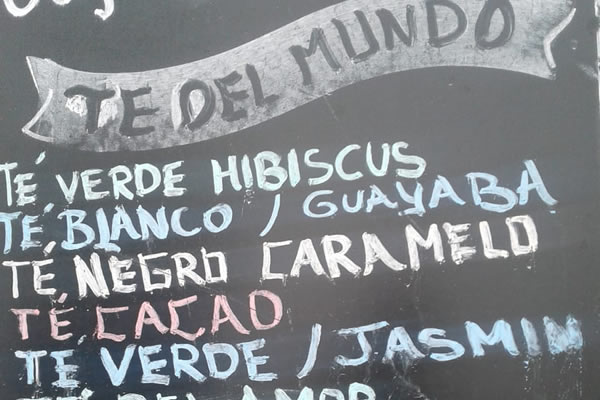 TE DEL MUNDO
TÉ VERDE HIBISCUS
TÉ BLANCO / GUAYABA
TÉ NEGRO CARAMELO
TÉ CACAO
TÉ VERDE / JASMIN
TÉ DEL AMOR